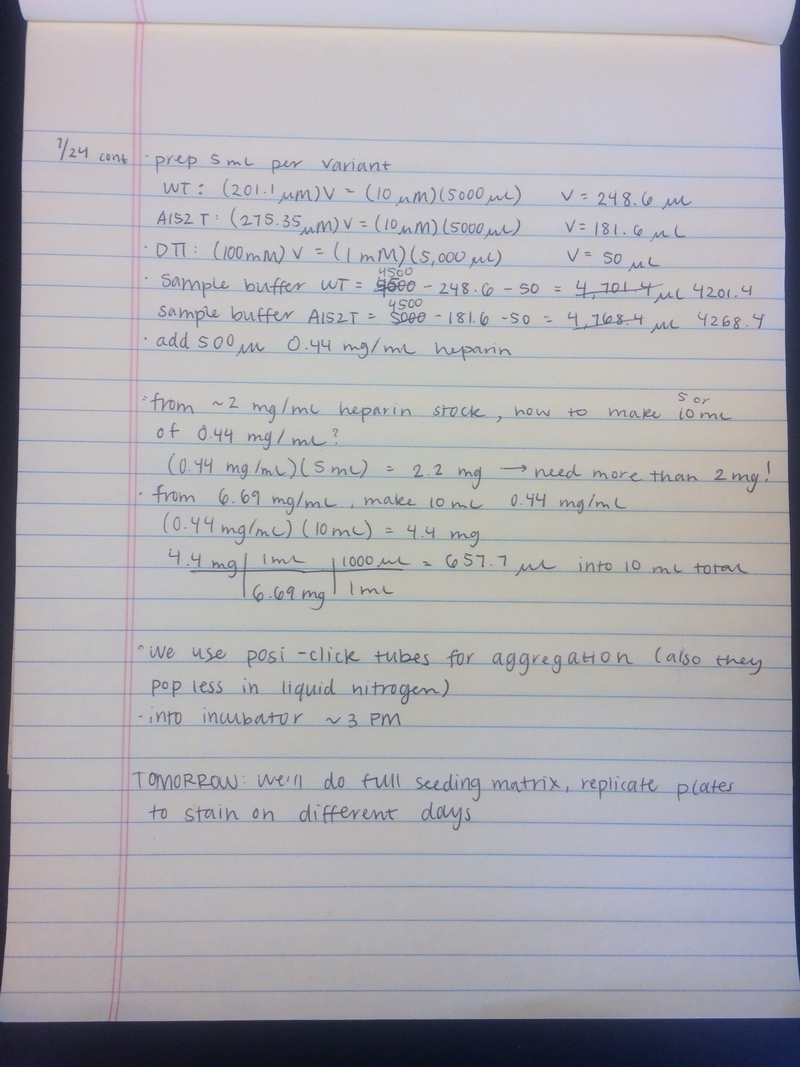 7/24 cont · prep 5 mL per variant
WT: (201.1 μM)V = (10 μM)(5000 μL) V = 248.6 μL
A152T: (275.35 μM)V = (10 μM)(5000 μL) V = 181.6 μL
· DTT: (100mM) V = (1 mM)(5,000 μL) V = 50 μL
4500
· Sample buffer WT = 5000 - 248.6 - 50 = 4,701.4 μL 4201.4
4500
sample buffer A152T = 5000 - 181.6 - 50 = 4,768.4 μL 4268.4
· add 500 μL 0.44 mg/mL heparin
5 or
· from ~2 mg/mL heparin stock, how to make 10 mL
of 0.44 mg/mL?
(0.44 mg/mL)(5 mL) = 2.2 mg → need more than 2 mg!
· from 6.69 mg/mL, make 10 mL 0.44 mg/mL
(0.44 mg/mL)(10 mL) = 4.4 mg
4.4 mg | 1 mL | 1000 μL = 657.7 μL into 10 mL total
| 6.69 mg | 1 mL
· We use posi-click tubes for aggregation (also they
pop less in liquid nitrogen)
· into incubator ~ 3 PM
TOMORROW: we'll do full seeding matrix, replicate plates
to stain on different days